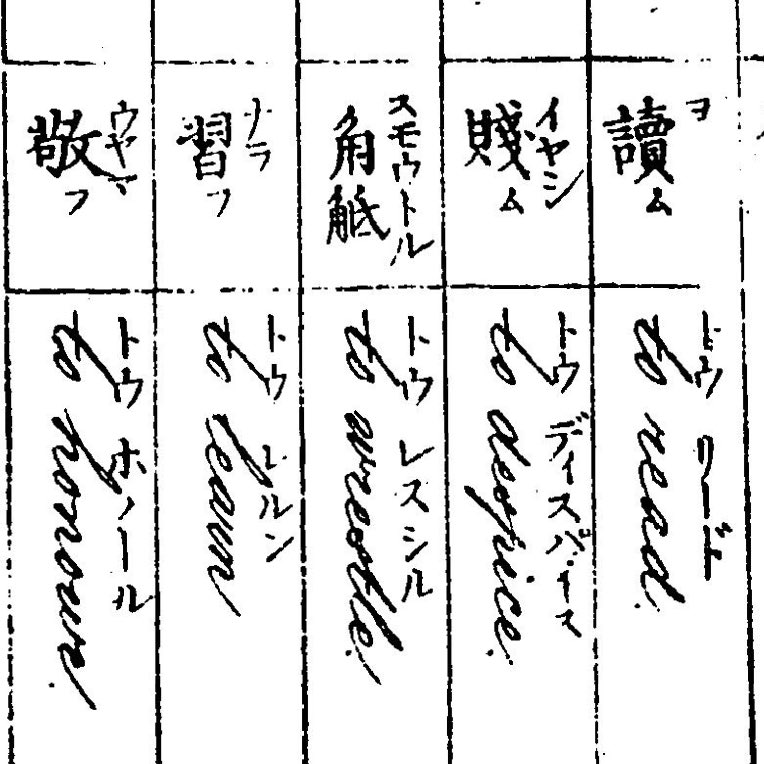 讀ム
ヨ
to read.
賤ム
イヤシ
to despice.
トウ ディスパイス
角觝
スモウトル
to wrestle.
トウ レスシル
習フ
ナラ
to learn
トウ レルン
敬フ
ウヤマ
to honour.
トウ ホノール